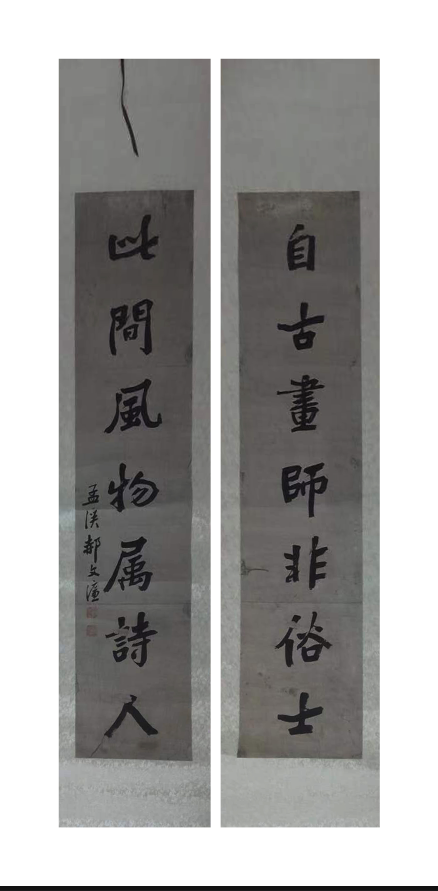 自古畫師非俗士
此間風物属詩人
孟溪郝文濂